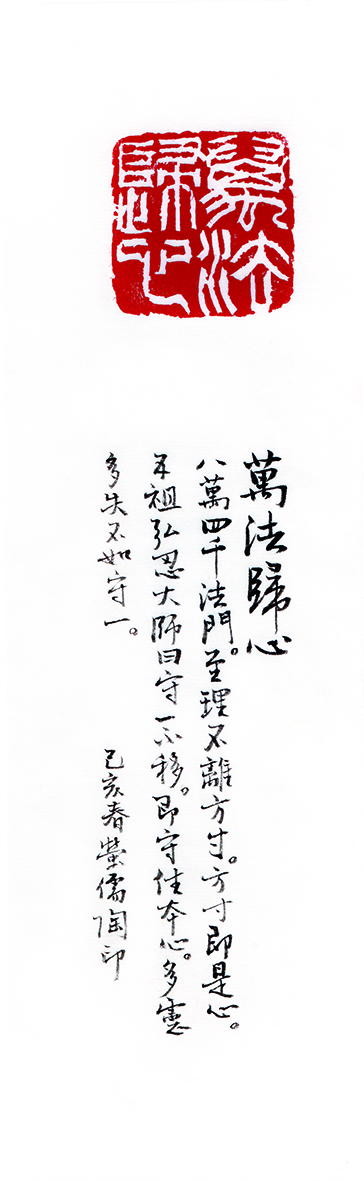 萬法歸心
萬法歸心
八萬四千法門。至理不離方寸。方寸即是心。
五祖弘忍大師曰守一不移。即守住本心。多慮
多失不如守一。
己亥春螢儒陶印